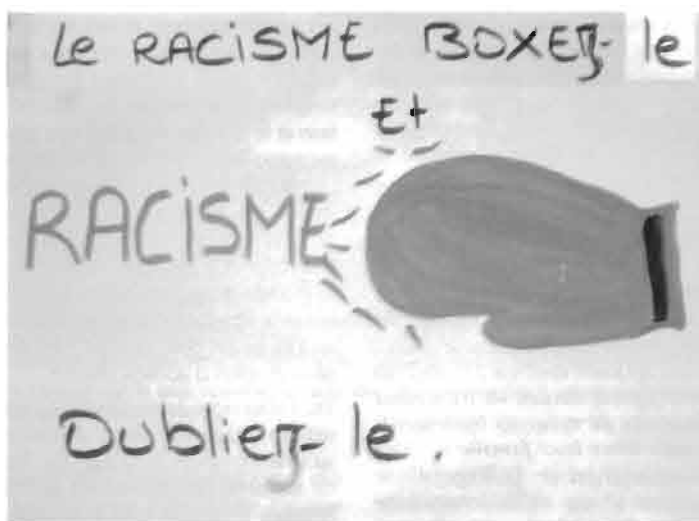 Le RACiSME BOXEZ- le
Et
RACiSME
Oubliez- le .